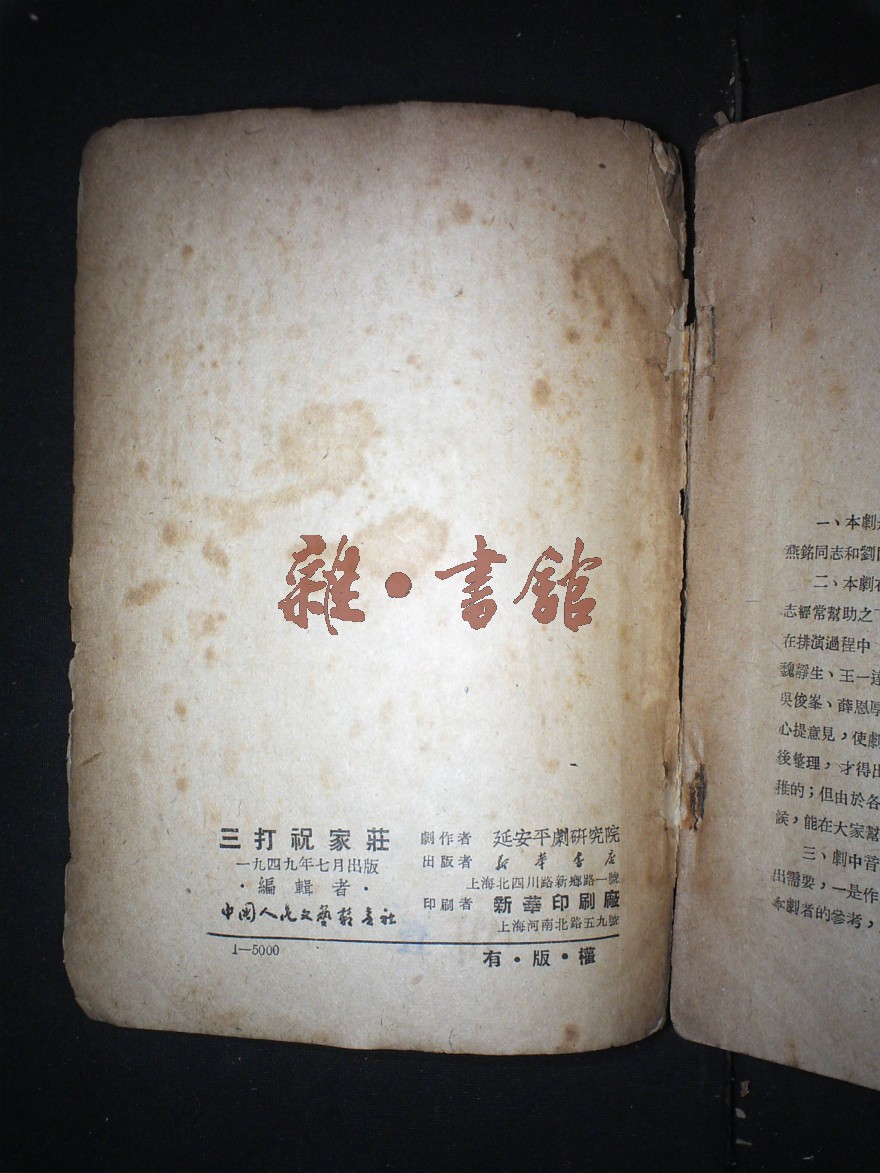 雜•書館
三打祝家莊
一九四九年七月出版
·編輯者·
中國人民文藝叢書社
劇作者 延安平劇研究院
出版者 新華書店
上海北四川路新鄉路一號
印刷者 新華印刷廠
上海河南北路五九號
1—5000
有·版·權
一、本劇
燕銘同志和劉
二、本劇
志經常幫助之
在排演過程中
魏靜生、王一達
吳俊峯、薛恩厚
心提意見，使劇
後整理，才得
雅的；但由於各
候，能在大家幫
三、劇中音
出需要，一是作
本劇者的參考，